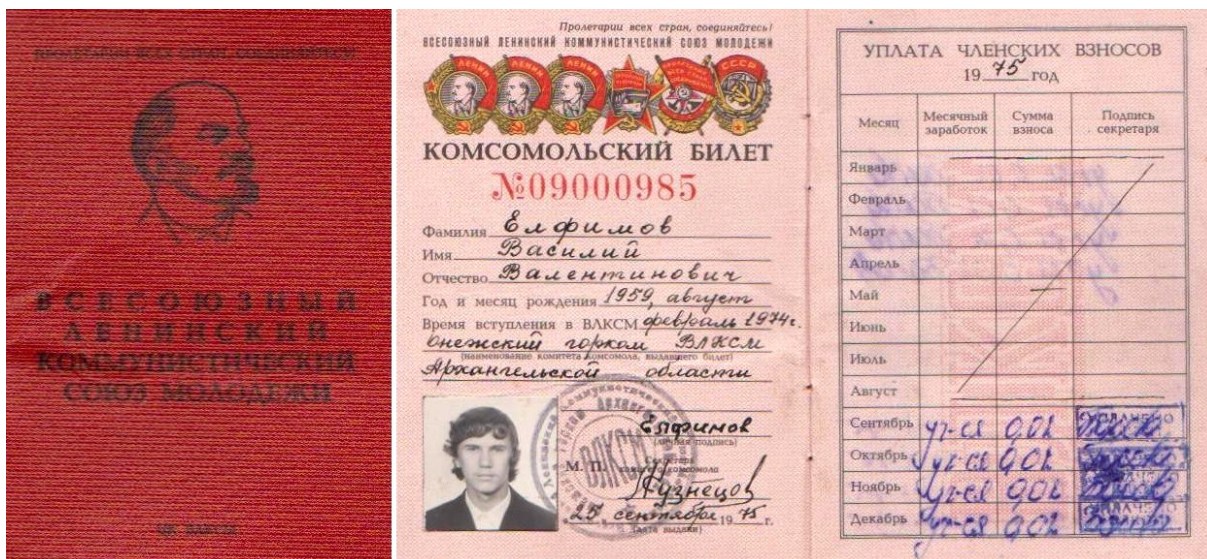 ПРОЛЕТАРИИ ВСЕХ СТРАН, СОЕДИНЯЙТЕСЬ!
ВСЕСОЮЗНЫЙ
ЛЕНИНСКИЙ
КОММУНИСТИЧЕСКИЙ
СОЮЗ МОЛОДЕЖИ
ЦК ВЛКСМ
Пролетарии всех стран, соединяйтесь!
ВСЕСОЮЗНЫЙ ЛЕНИНСКИЙ КОММУНИСТИЧЕСКИЙ СОЮЗ МОЛОДЕЖИ
ЛЕНИН ЛЕНИН ЛЕНИН СССР
КОМСОМОЛЬСКИЙ БИЛЕТ
№09000985
Фамилия Елфимов
Имя Василий
Отчество Валентинович
Год и месяц рождения 1959, август
Время вступления в ВЛКСМ февраль 1974г.
Онежский горком ВЛКСМ
(наименование комитета комсомола, выдавшего билет)
Архангельской области
Елфимов
(личная подпись)
М. П. Секретарь
комитета комсомола
ВЛКСМ
Кузнецов
25 сентября 1975 г.
(дата выдачи)
УПЛАТА ЧЛЕНСКИХ ВЗНОСОВ
19 75 год
Месяц Месячный заработок Сумма взноса Подпись секретаря
Январь
Февраль
Март
Апрель
Май
Июнь
Июль
Август
Сентябрь уч-ся 0,02
Октябрь уч-ся 0,02
Ноябрь уч-ся 0,02
Декабрь уч-ся 0,02